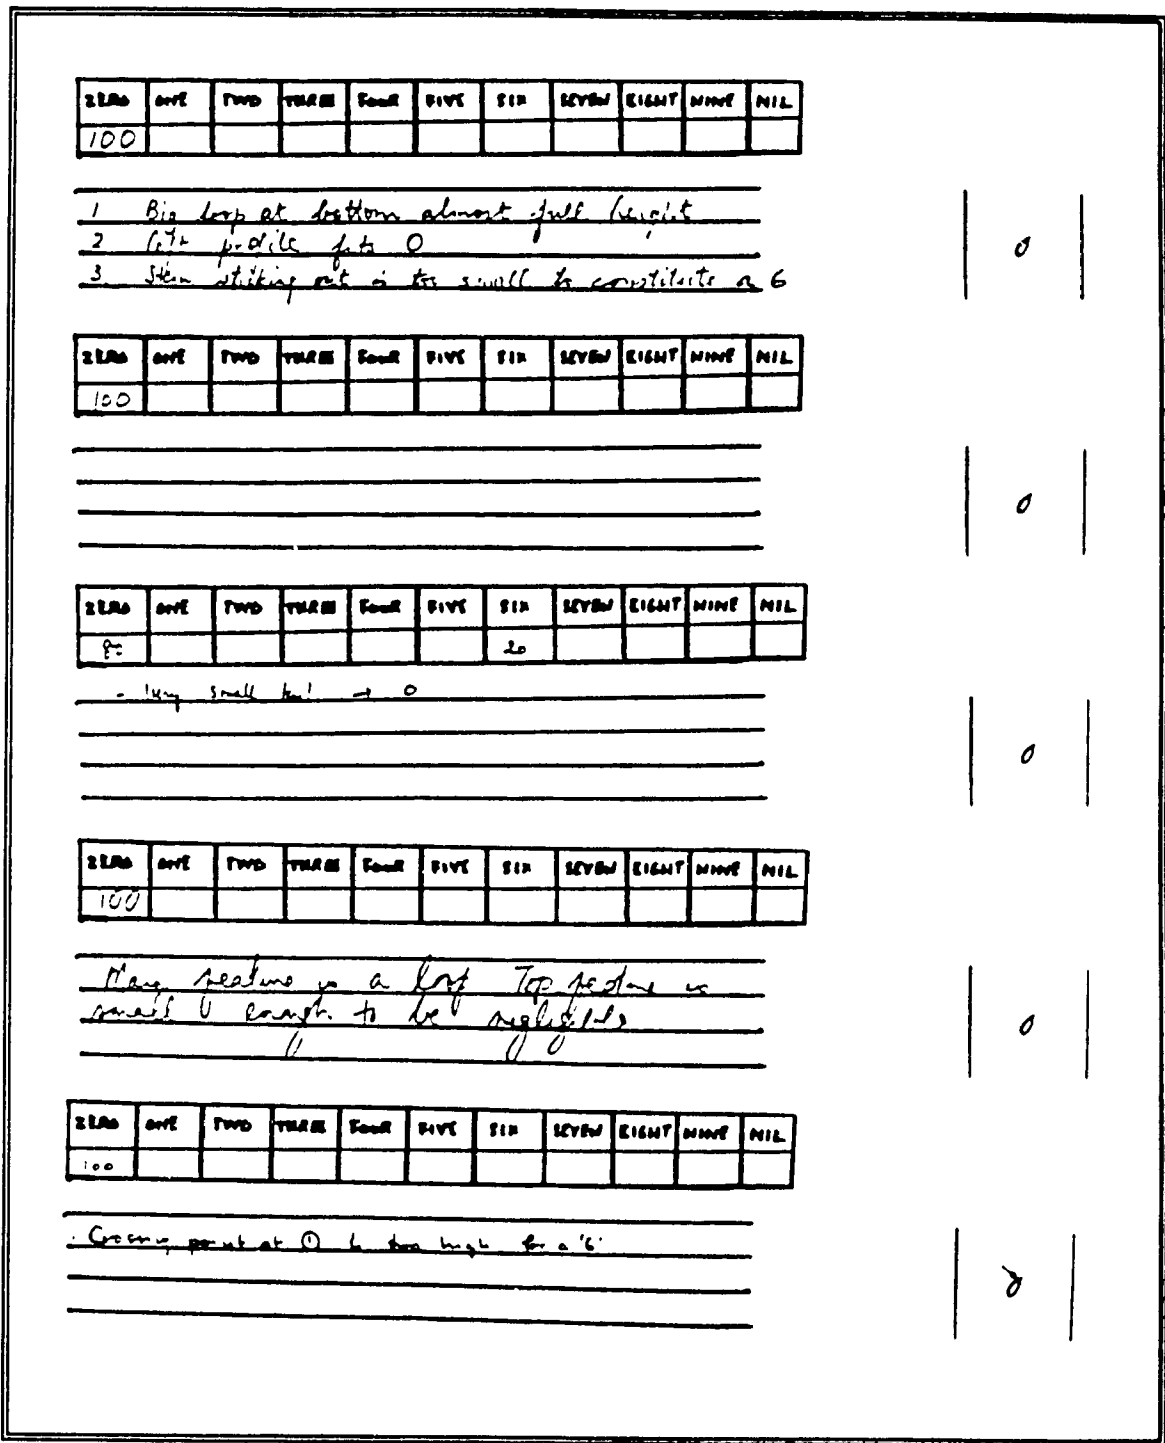 ZERO ONE TWO THREE FOUR FIVE SIX SEVEN EIGHT NINE NIL
100
1 Big loop at bottom almost full height
2 left profile fits 0
3. Stem sticking out is too small to constitute a 6
0
ZERO ONE TWO THREE FOUR FIVE SIX SEVEN EIGHT NINE NIL
100
0
ZERO ONE TWO THREE FOUR FIVE SIX SEVEN EIGHT NINE NIL
80 20
- Very small tail → 0
0
ZERO ONE TWO THREE FOUR FIVE SIX SEVEN EIGHT NINE NIL
100
feature is a loop Top feature is
small enough to be negligible
0
ZERO ONE TWO THREE FOUR FIVE SIX SEVEN EIGHT NINE NIL
100
. Crossing point at ① is too high for a '6'